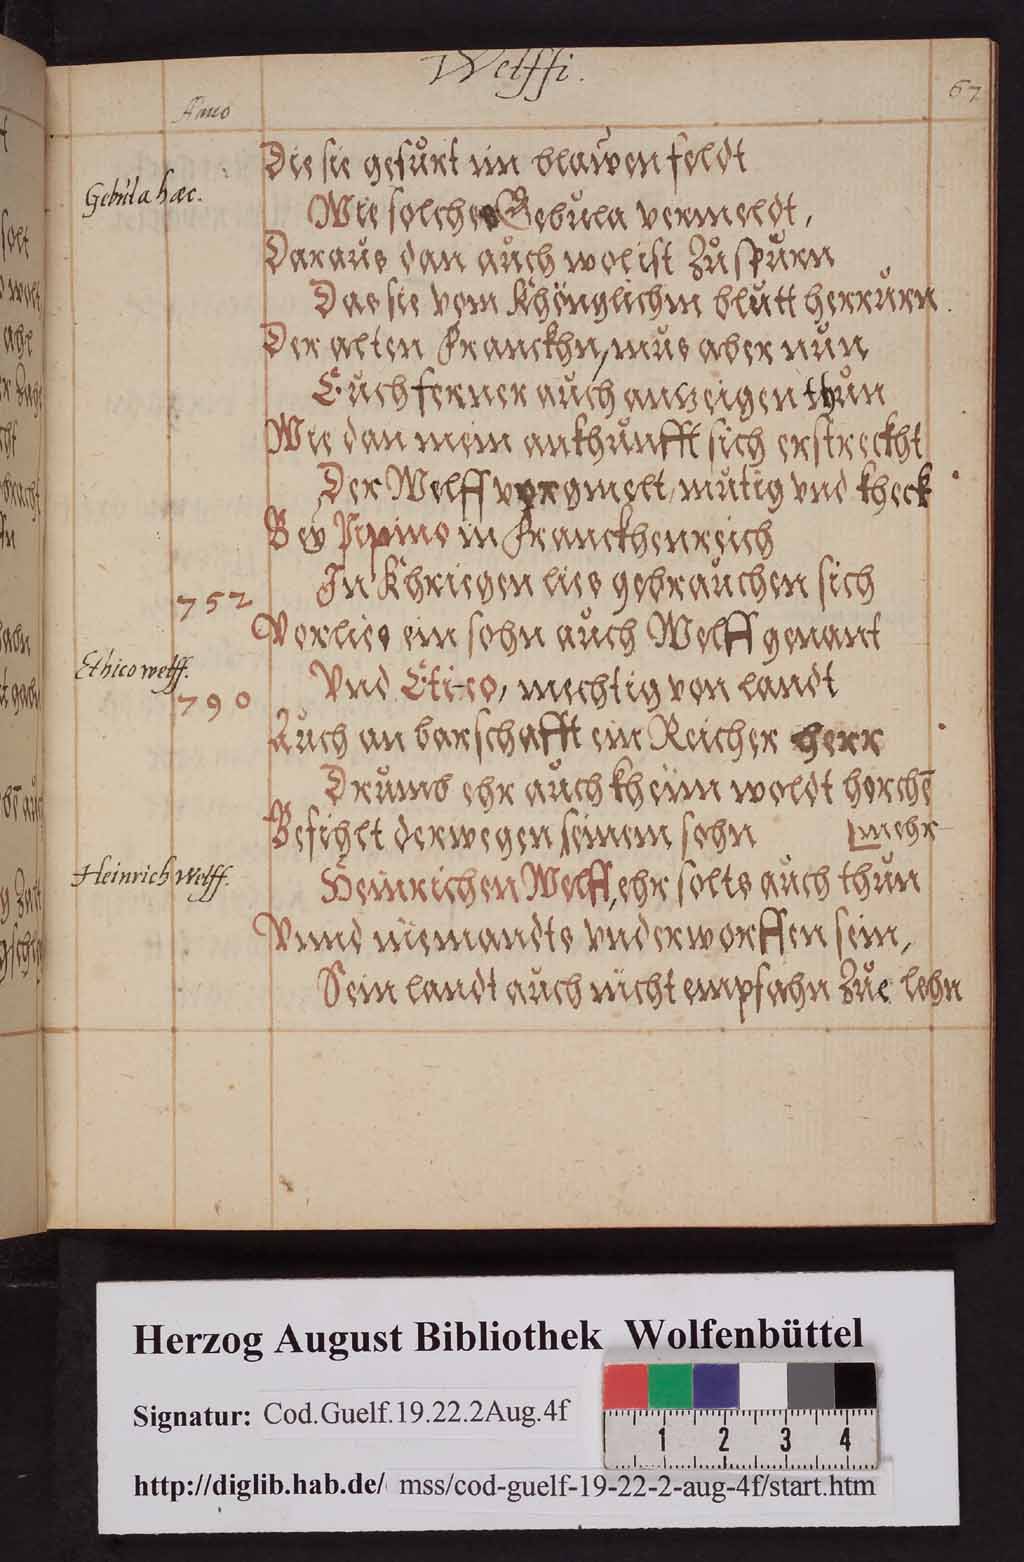 Welffi.
67
Anno
Die sie gefůrt im blawen feldt
Gebůla hæc.
Wie solches Gebůla vermeldt,
Daraůs dan aůch wol ist Zůspůrn
Das sie vom Khönglichm blůtt herrůrn.
Der alten Franckhn, můs aber nůn
Eůch ferner aůch anzeigen thůn
Wie dan mein ankhůnfft sich erstreckht
Der Welff vorgmelt, můtig vnd kheck
Bey Pipino in Franckhenreich
In Khriegen lies gebraůchen sich
752
Verlies ein sohn aůch Welff genant
Ethico welff.
Vnd Etico, mechtig von landt
790
Aůch an barschafft ein Reicher herr
Drůmb ehr aůch kheim woldt horchē
mehr
Befihlt derwegen seinem sohn
Heinrich Welff.
Heinrichen Welff, ehr solts aůch thůn
Vnnd niemandts vnderworffen sein,
Sein landt aůch nicht empfahn Zůe lehn
Herzog August Bibliothek Wolfenbüttel
Signatur: Cod.Guelf.19.22.2Aug.4f
1 2 3 4
http://diglib.hab.de/ mss/cod-guelf-19-22-2-aug-4f/start.htm